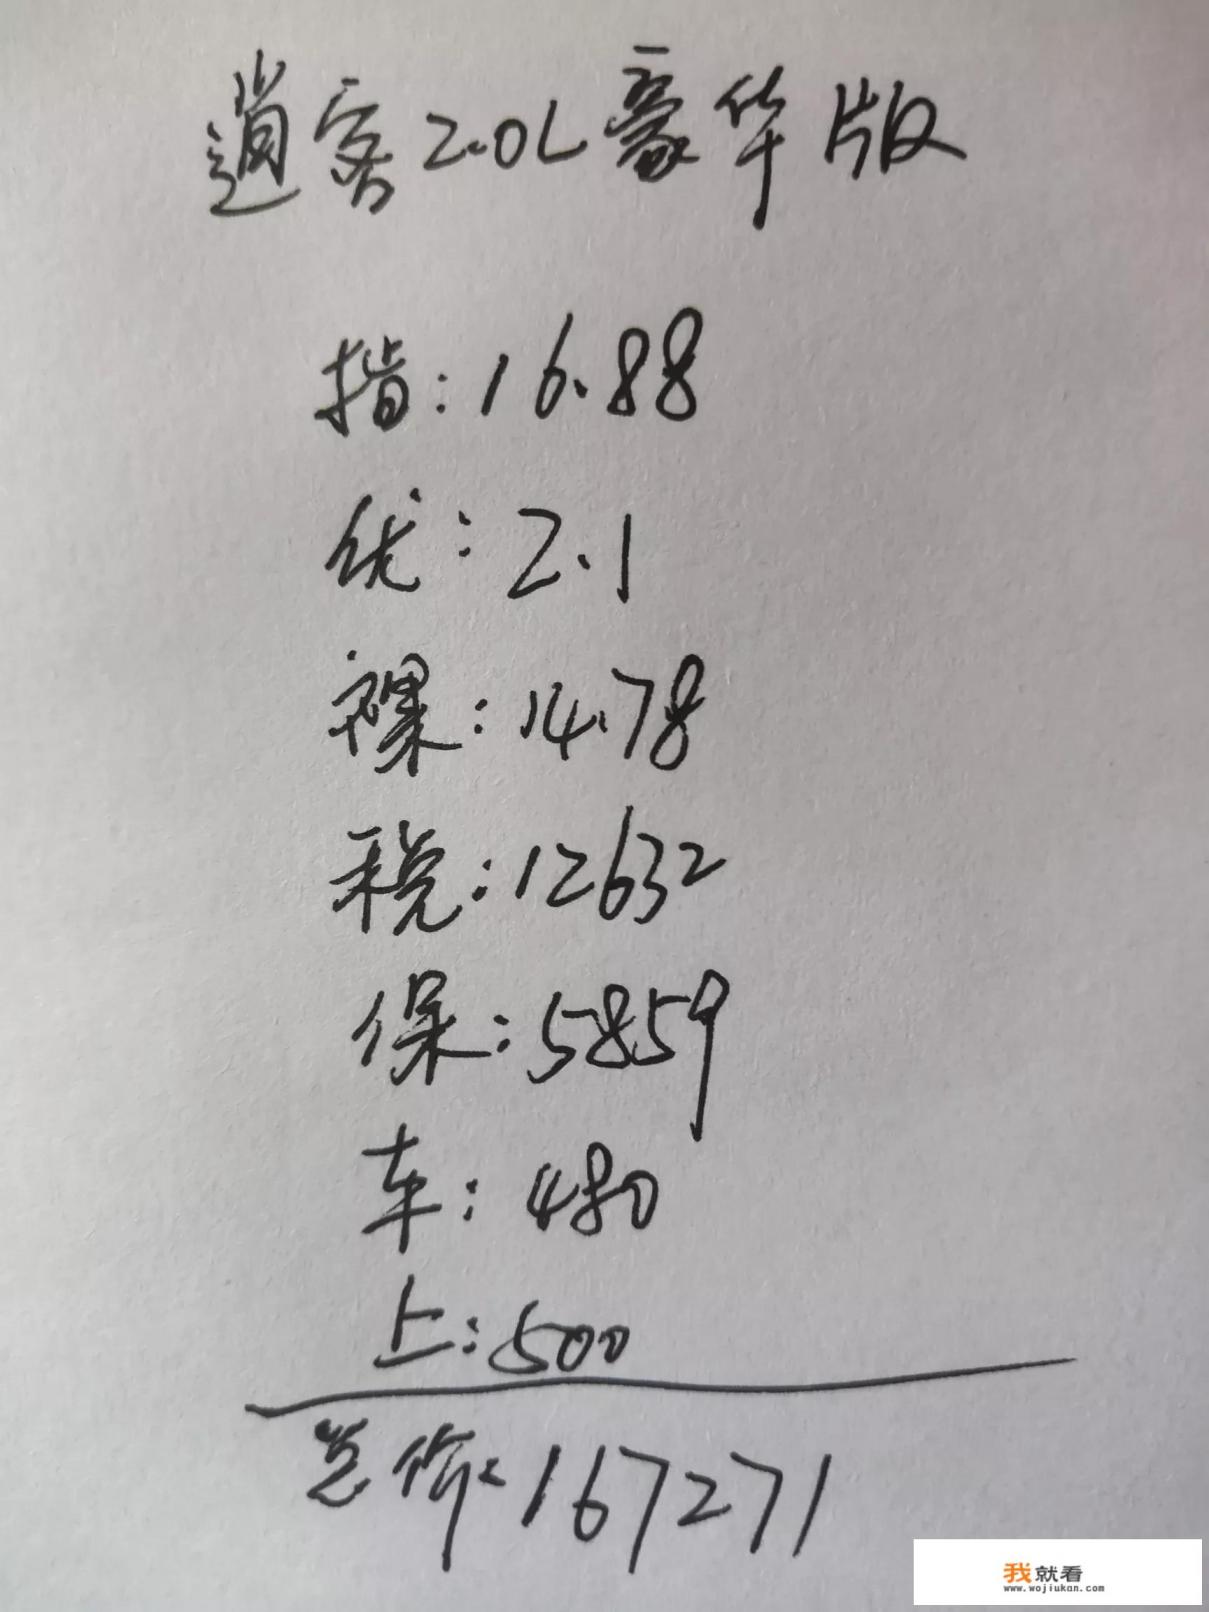 逍客2.0L豪华版
指:16.88
优:2.1
裸:14.78
税:12632
保:5859
车:480
上:500
总价:167271
我就看
www.wojiukan.com